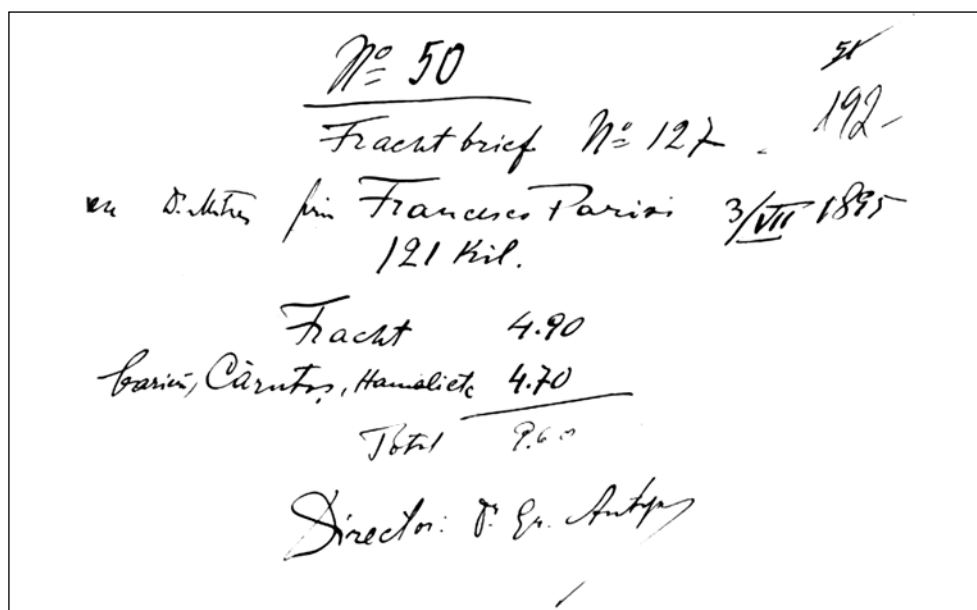 51
Nº 50
192-
Frachtbrief Nº 127.
prin Francesco Parisi 3/VII 1895
121 Kil.
Fracht 4.90
Căruțaș, Hamal etc 4.70
Total 9.60
Director: Dr Gr. Antipa